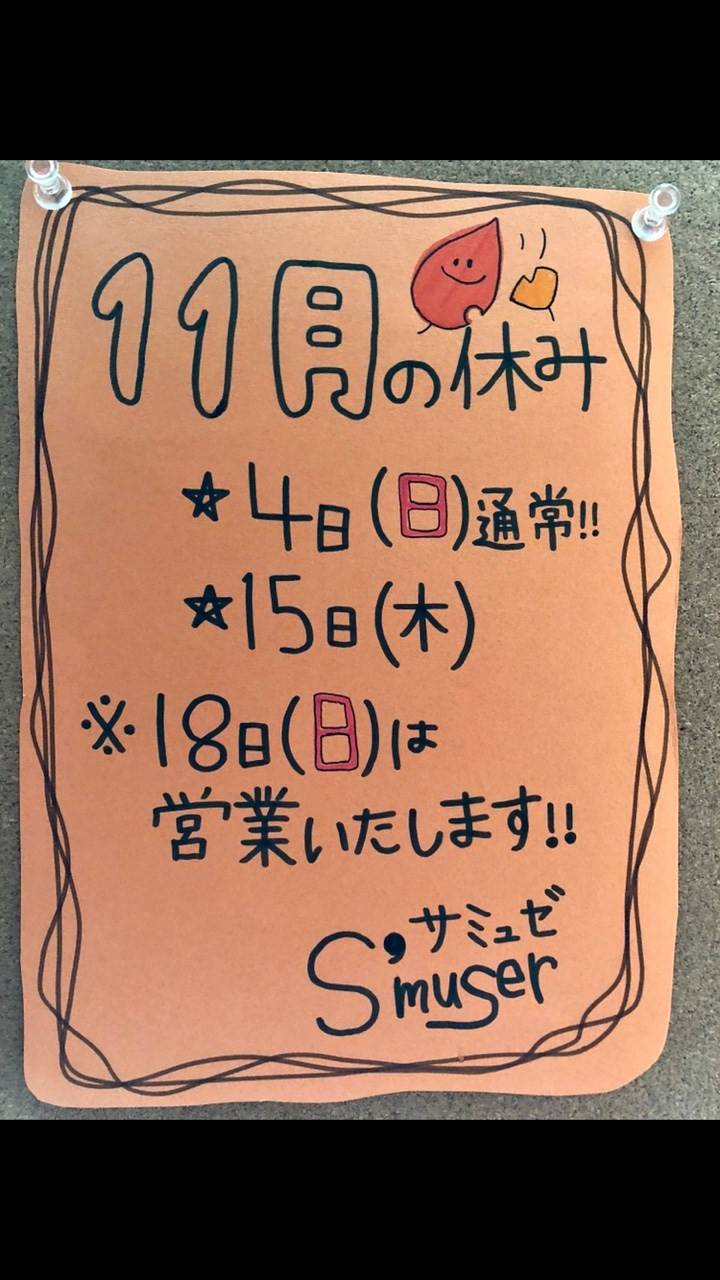 11月の休み
☆4日(日)通常!!
☆15日(木)
※18日(日)は
営業いたします!!
サミュゼ
S'muser